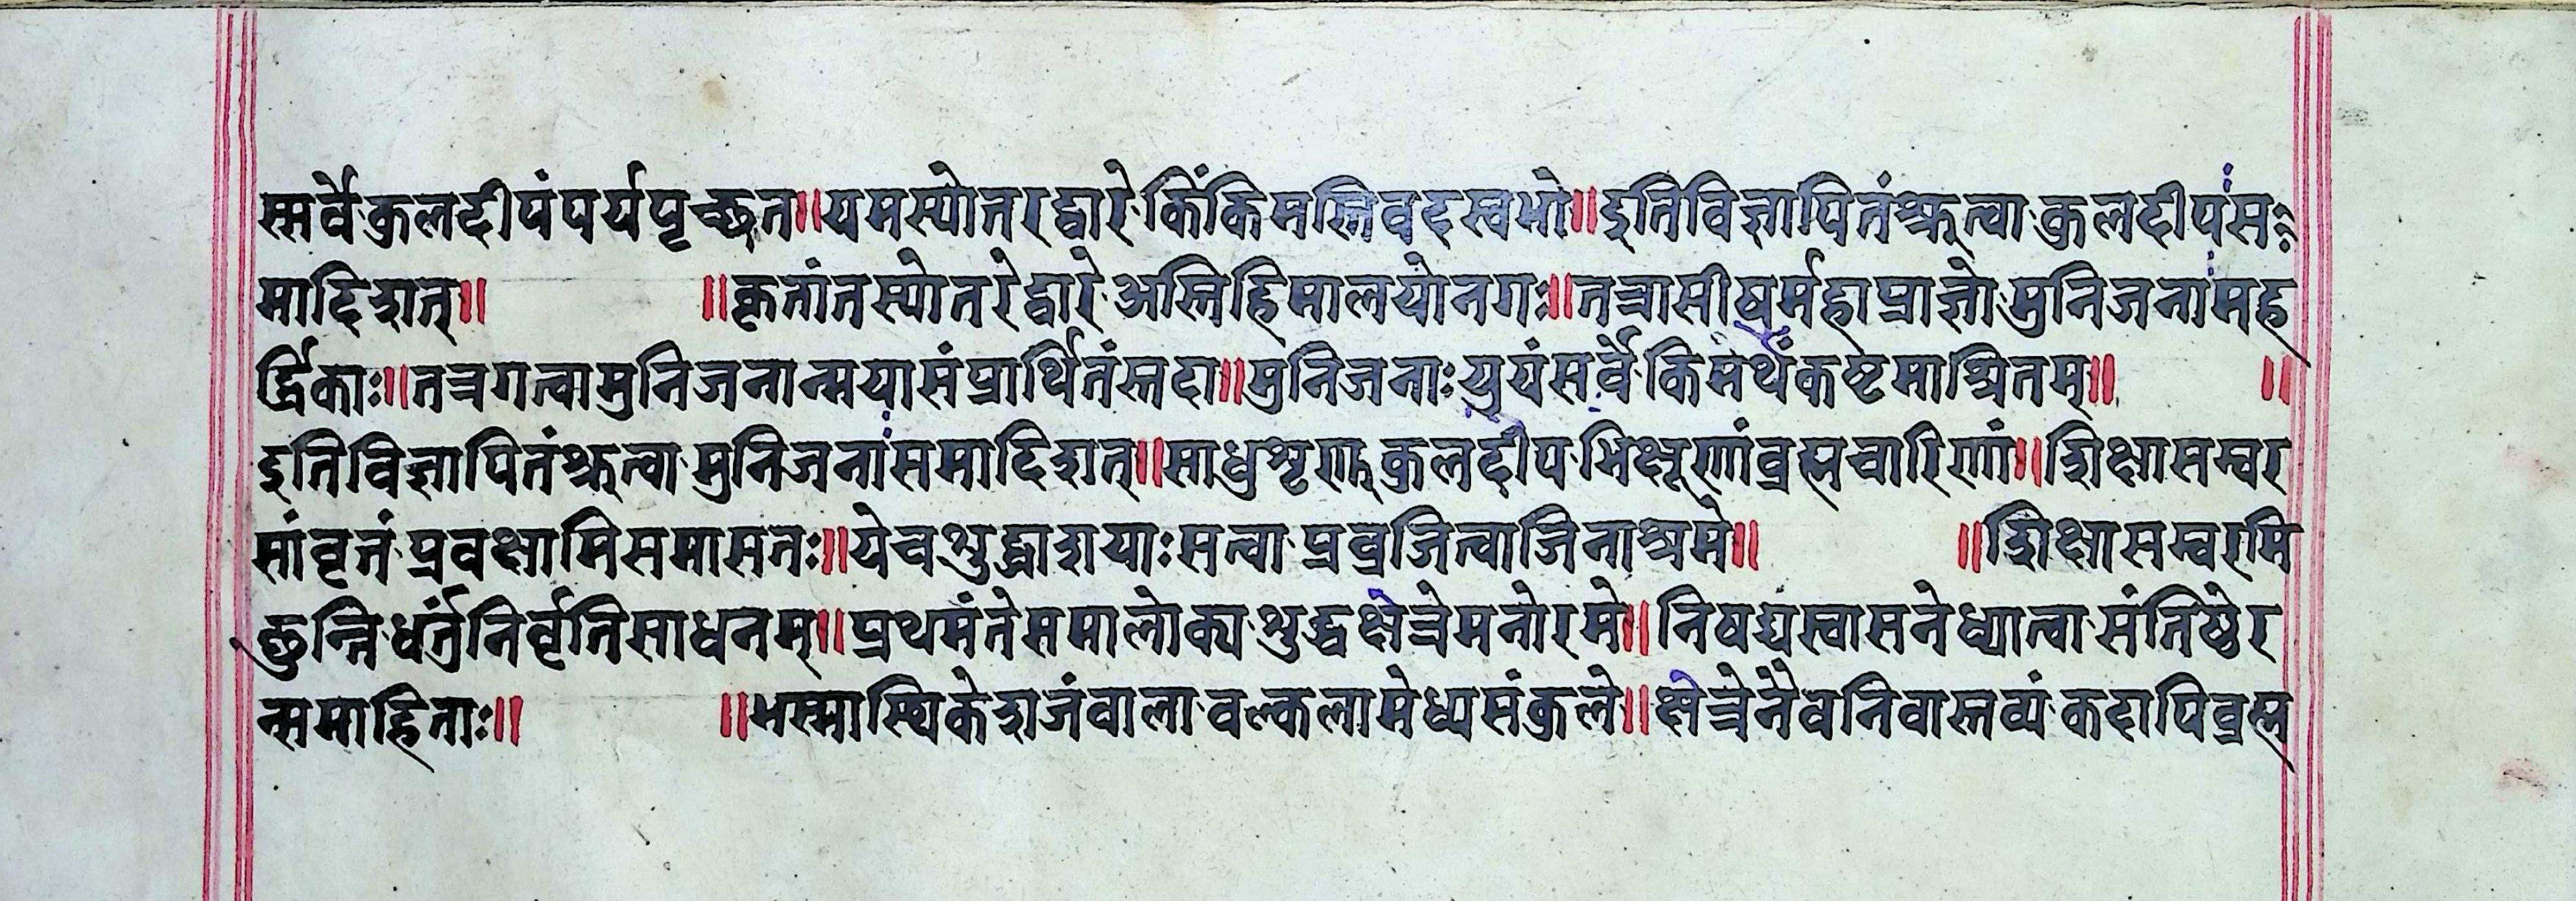 स्मर्वे कुलदीपं पर्यपृच्छत॥यमस्योतरद्वारे किं किमस्ति वदस्व भो॥इति विज्ञापितं श्रुत्वा कुलदीपं स
मादिशत्॥ ॥कृतांतस्योतरे द्वारे अस्ति हिमालयो नगः॥तत्रासीषर्महाप्राज्ञो मुनिजनां मह
र्द्धिकाः॥तत्र गत्वा मुनिजनान्मया संप्रार्थितंस्तदा॥मुनिजनाः युयं सर्वे किमर्थं कष्टमाश्रितम्॥ ॥
इति विज्ञापितं श्रुत्वा मुनिजनां समादिशत्॥साधु शृणु कुलदीप भिक्षूणां ब्रह्मचारिणां॥शिक्षासम्वर
सांवृतं प्रवक्षामि समासतः॥ये च शुद्धाशयाः सत्वा प्रव्रजित्वा जिनाश्रमे॥ ॥शिक्षासम्वरमि
छन्ति धर्तुं निर्वृतिसाधनम्॥प्रथमं ते समालोक्य शुद्धक्षेत्रे मनोरमे॥निषद्य स्वासने ध्यात्वा संतिष्ठेर
न्समाहिताः॥ ॥भस्मास्थिकेशजंवालावल्कलामेध्यसंकुले॥क्षेत्रे नैव निवास्तव्यं कदापि ब्रह्म